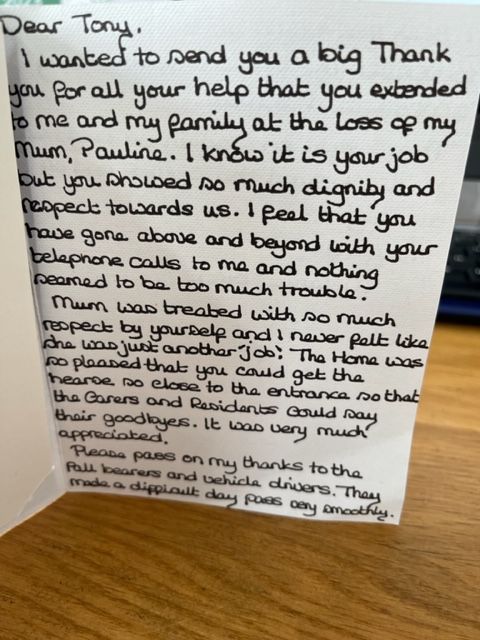 Dear Tony.
I wanted to send you a big Thank
you for all your help that you extended
to me and my family at the loss of my
Mum, Pauline. I know it is your job
but you showed so much dignity and
respect towards us. I feel that you
have gone above and beyond with your
telephone calls to me and nothing
seemed to be too much trouble.
Mum was treated with so much
respect by yourself and I never felt like
she was just another 'job'. The Home was
so pleased that you could get the
hearse so close to the entrance so that
the Carers and Residents could say
their goodbyes. It was very much
appreciated.
Please pass on my thanks to the
Pall bearers and vehicle drivers. They
made a difficult day pass very smoothly.